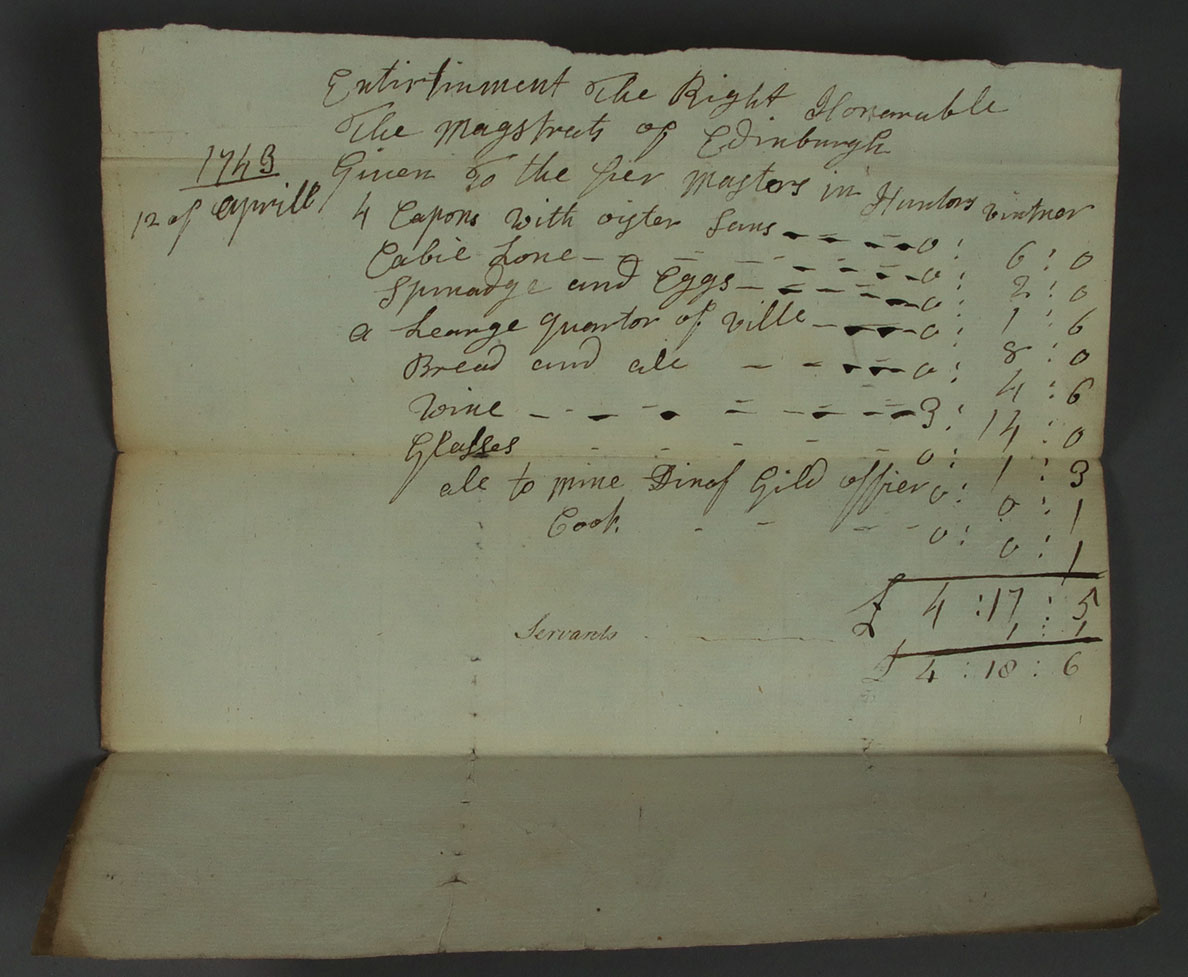 Entirtinment The Right Honarable
The Magstrets of Edinburgh
1743 Given To the fier Masters in Huntors vintner
12 of Aprill 4 Capons with oister Saus 0 : 6 : 0
Cabie Lone 0 : 2 : 0
Spinadge and Eggs 0 : 1 : 6
a Learge quartor of ville 0 : 8 : 0
Bread and ale 0 : 4 : 6
Wine 3 : 14 : 0
Glasses 0 : 1 : 3
ale to mine Dinof Gild offier 0 : 0 : 1
Cook 0 : 0 : 1
£ 4 : 17 : 5
Servants 1 : 1
£ 4 : 18 : 6